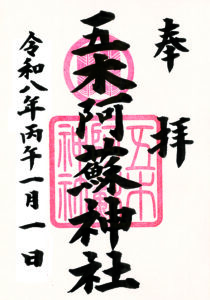 奉拝
五木阿蘇神社
令和八年丙午一月一日
五木
阿蘇
神社